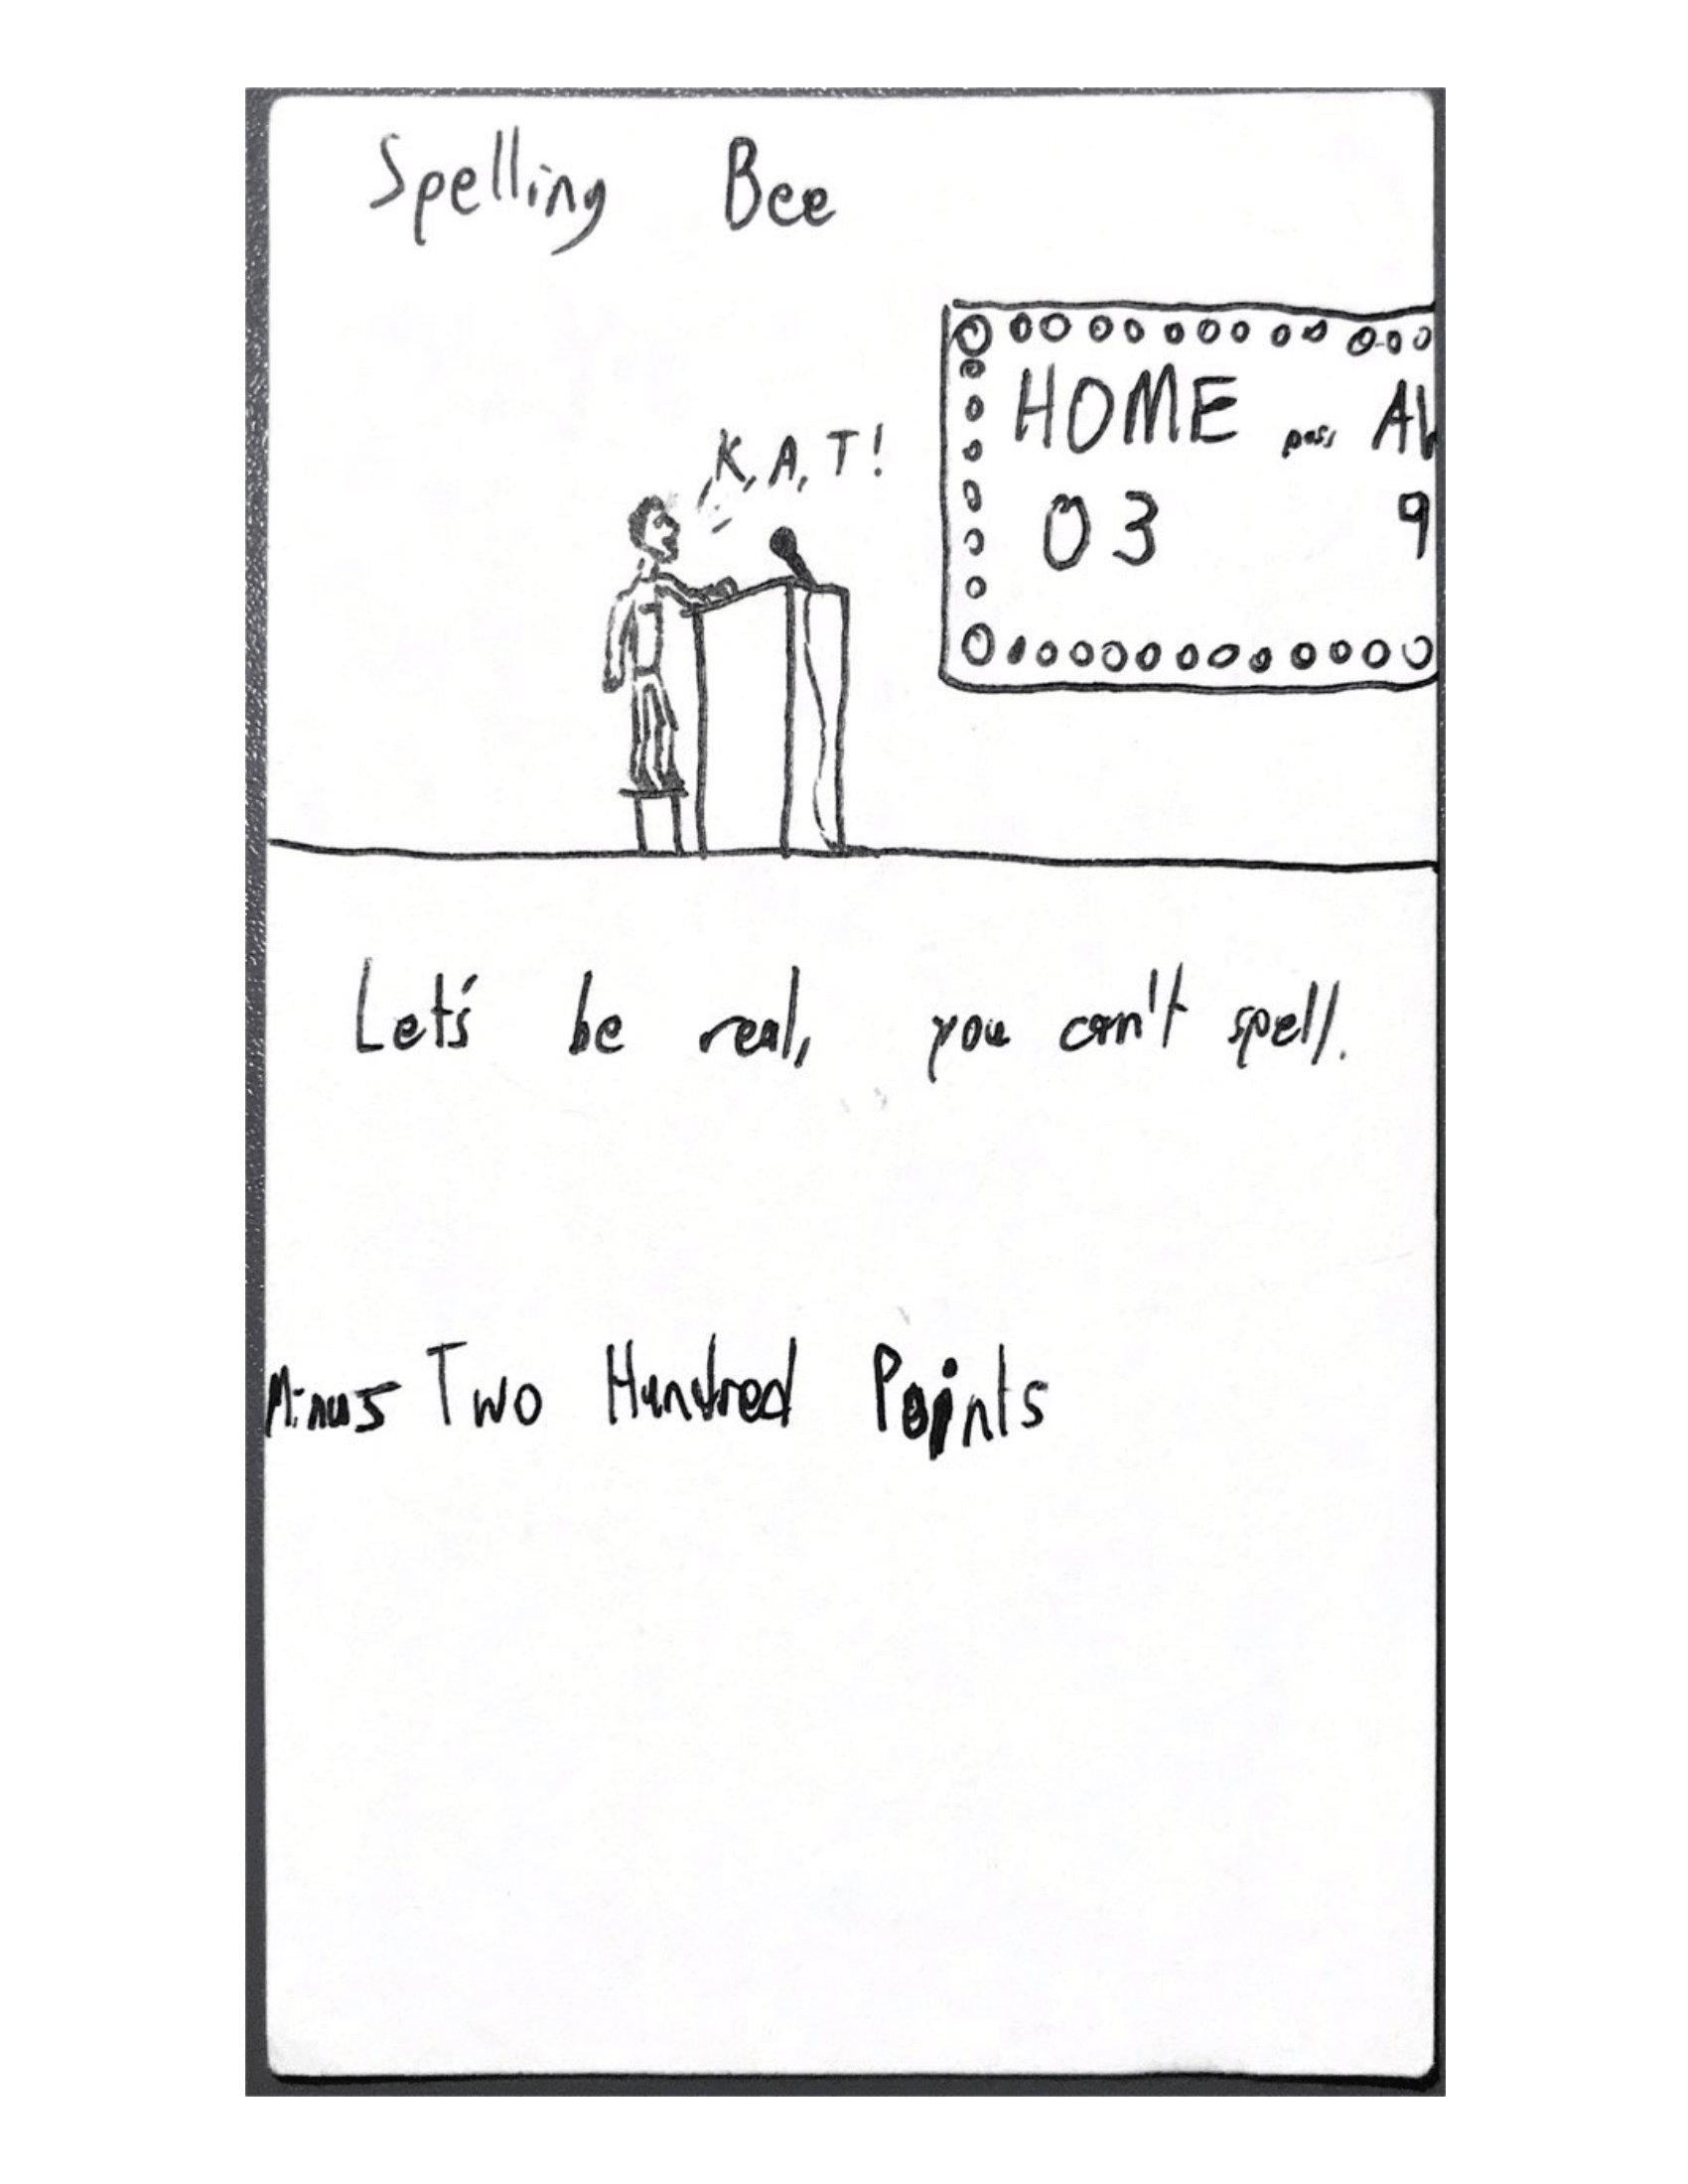 Spelling Bee
HOME poss AW
K, A, T!
03 9
Let's be real, you can't spell.
Minus Two Hundred Points